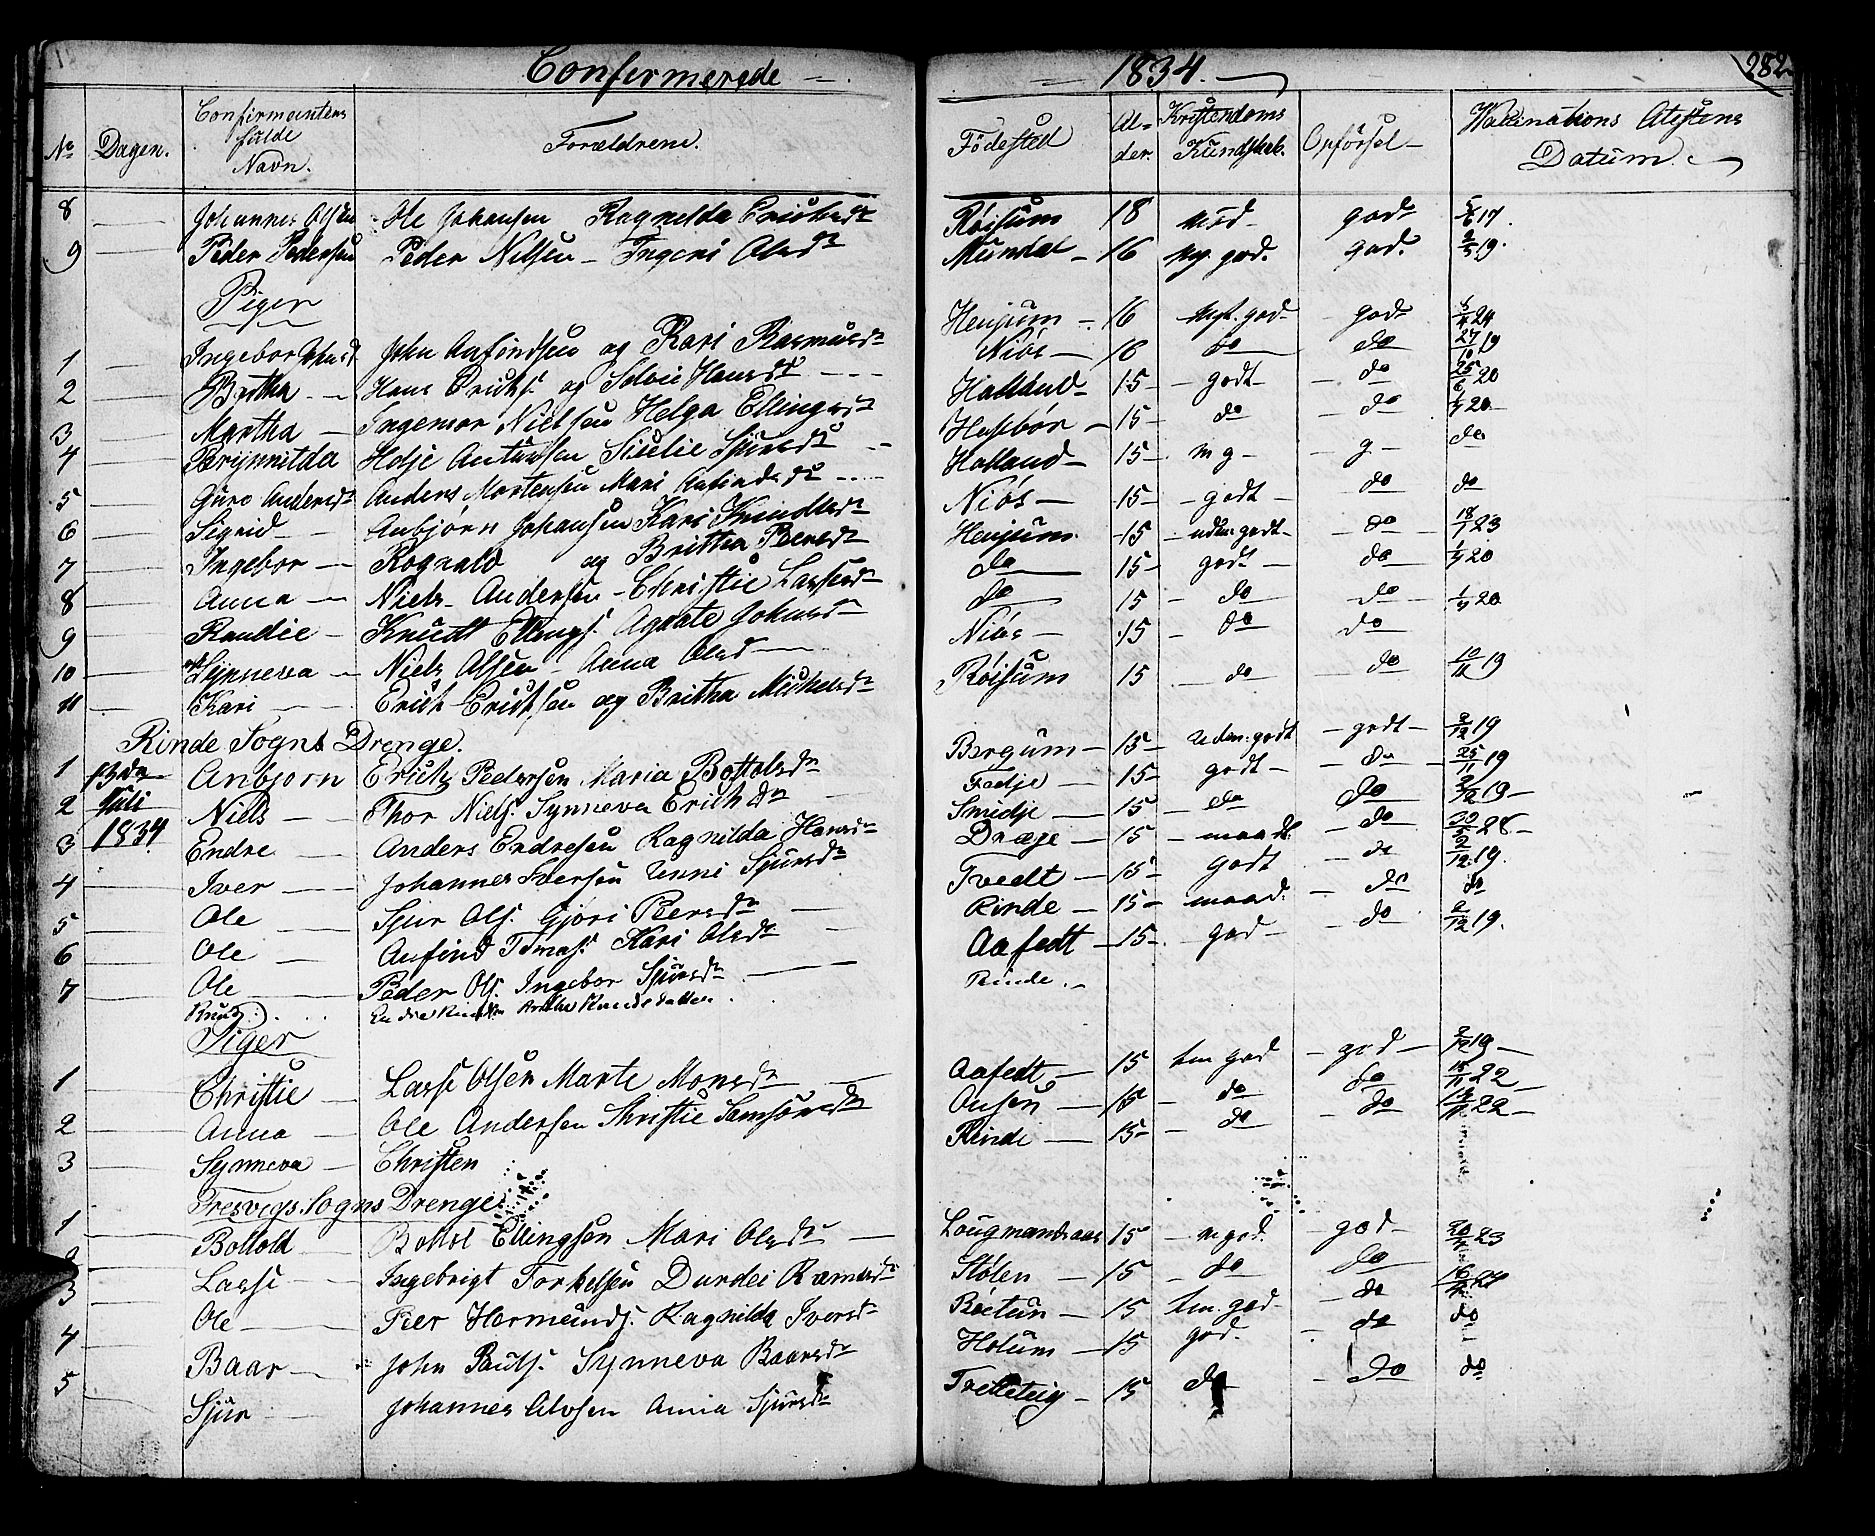 Confirmerede 1834. 282
No Dagen. Confirmantens fulde Navn. Forældrene. Fødested Al- der. Kristendoms Kundskab. Opførsel Vaccinations Atestens Datum.
8 Johannes Olsen Ole Johansen Ragnilda Erichsdr Røisum 18 mod god 17.
9 Peder Pedersen Peder Nilsen Ingeri Olsdr Mundal 16 mg. god. god. 19.
Piger
1 Ingebor Johnsd John Anfindsen og Kari Rasmusdr Henjum 16 mgt. god god 24
2 Britha Hans Erichs. og Solvie Hansdr Niøs 18 do do 27/10 19
3 Martha Ingemor Nielsen Helga Ellingsdr Halland 15 godt do 25/6 20
4 Brynnilda Holje Antunsen Sicelie Sjursdr Husebør 15 do do 20
5 Guro Andersdr Anders Mortensen Mari Anfindsdr Holland 15 mg g do
6 Sigrid Anbjørn Johansen Kari Knudtsdr Niøs 15 godt do do
7 Ingebor Rognald og Britha Peersdr Henjum 15 uden. godt do 18/1 23
8 Anna Niels Andersen Christie Lassesdr do 15 godt do 20
9 Randie Knudt Ellings. Agate Johnsdr do 15 do do 20
10 Synneva Niels Olsen Anna Olsd Niøs 15 do do
11 Kari Erich Erichsen og Britha Michelsdr Røisum 15 do do 10/11 19
Rinde Sogns Drenge.
1 13de Anbjørn Erich Pedersen Maria Bottolsdr Bergum 15 uden. godt godt 2/12 19
2 Juli Niels Thor Niels. Synneva Erichsdr Fedje 15 godt do 25/11 19
3 1834 Endre Anders Endresen Ragnilda Hansdr Smidje 15 do do 2/12 19
4 Iver Johannes Iversen Unni Sjursdr Dræge 15 maadt. do 28
5 Ole Sjur Ols. Gjøri Peersdr Tvedt 15 godt do 2/12 19.
6 Ole Anfind Tomas. Kari Olsdr Rinde 15 maad. do do
7 Ole Peder Ols. Ingebor Sjursdr Aafedt 15 god do 2/12 19.
Knud Rinde.
Piger
1 Christie Lasse Olsen Marte Monsdr Aafedt 15 tm god god 2/12 19
2 Anna Ole Andersen Christie Samsonsdr 15 do do 18/11 22
3 Synneva Christen Rinde 15 do do 22
Fresvigs Sogns Drenge
1 Bottold Bottol Ellingsen Mari Olsdr Lougmandsaas 15 mgod god 23
2 Lasse Ingebrigt Torkelsen Durdei Stølen 15 do do 16
3 Ole Peer Hermunds. Ragnilda Iversdr Bøetun 15 tm. god do do
4 Baar John Pauls. Synneva Baarsdr Hotum 15 god. do
5 Sjur Johannes Olvsen Anna Sjursdr Tretteteig 15 do do do